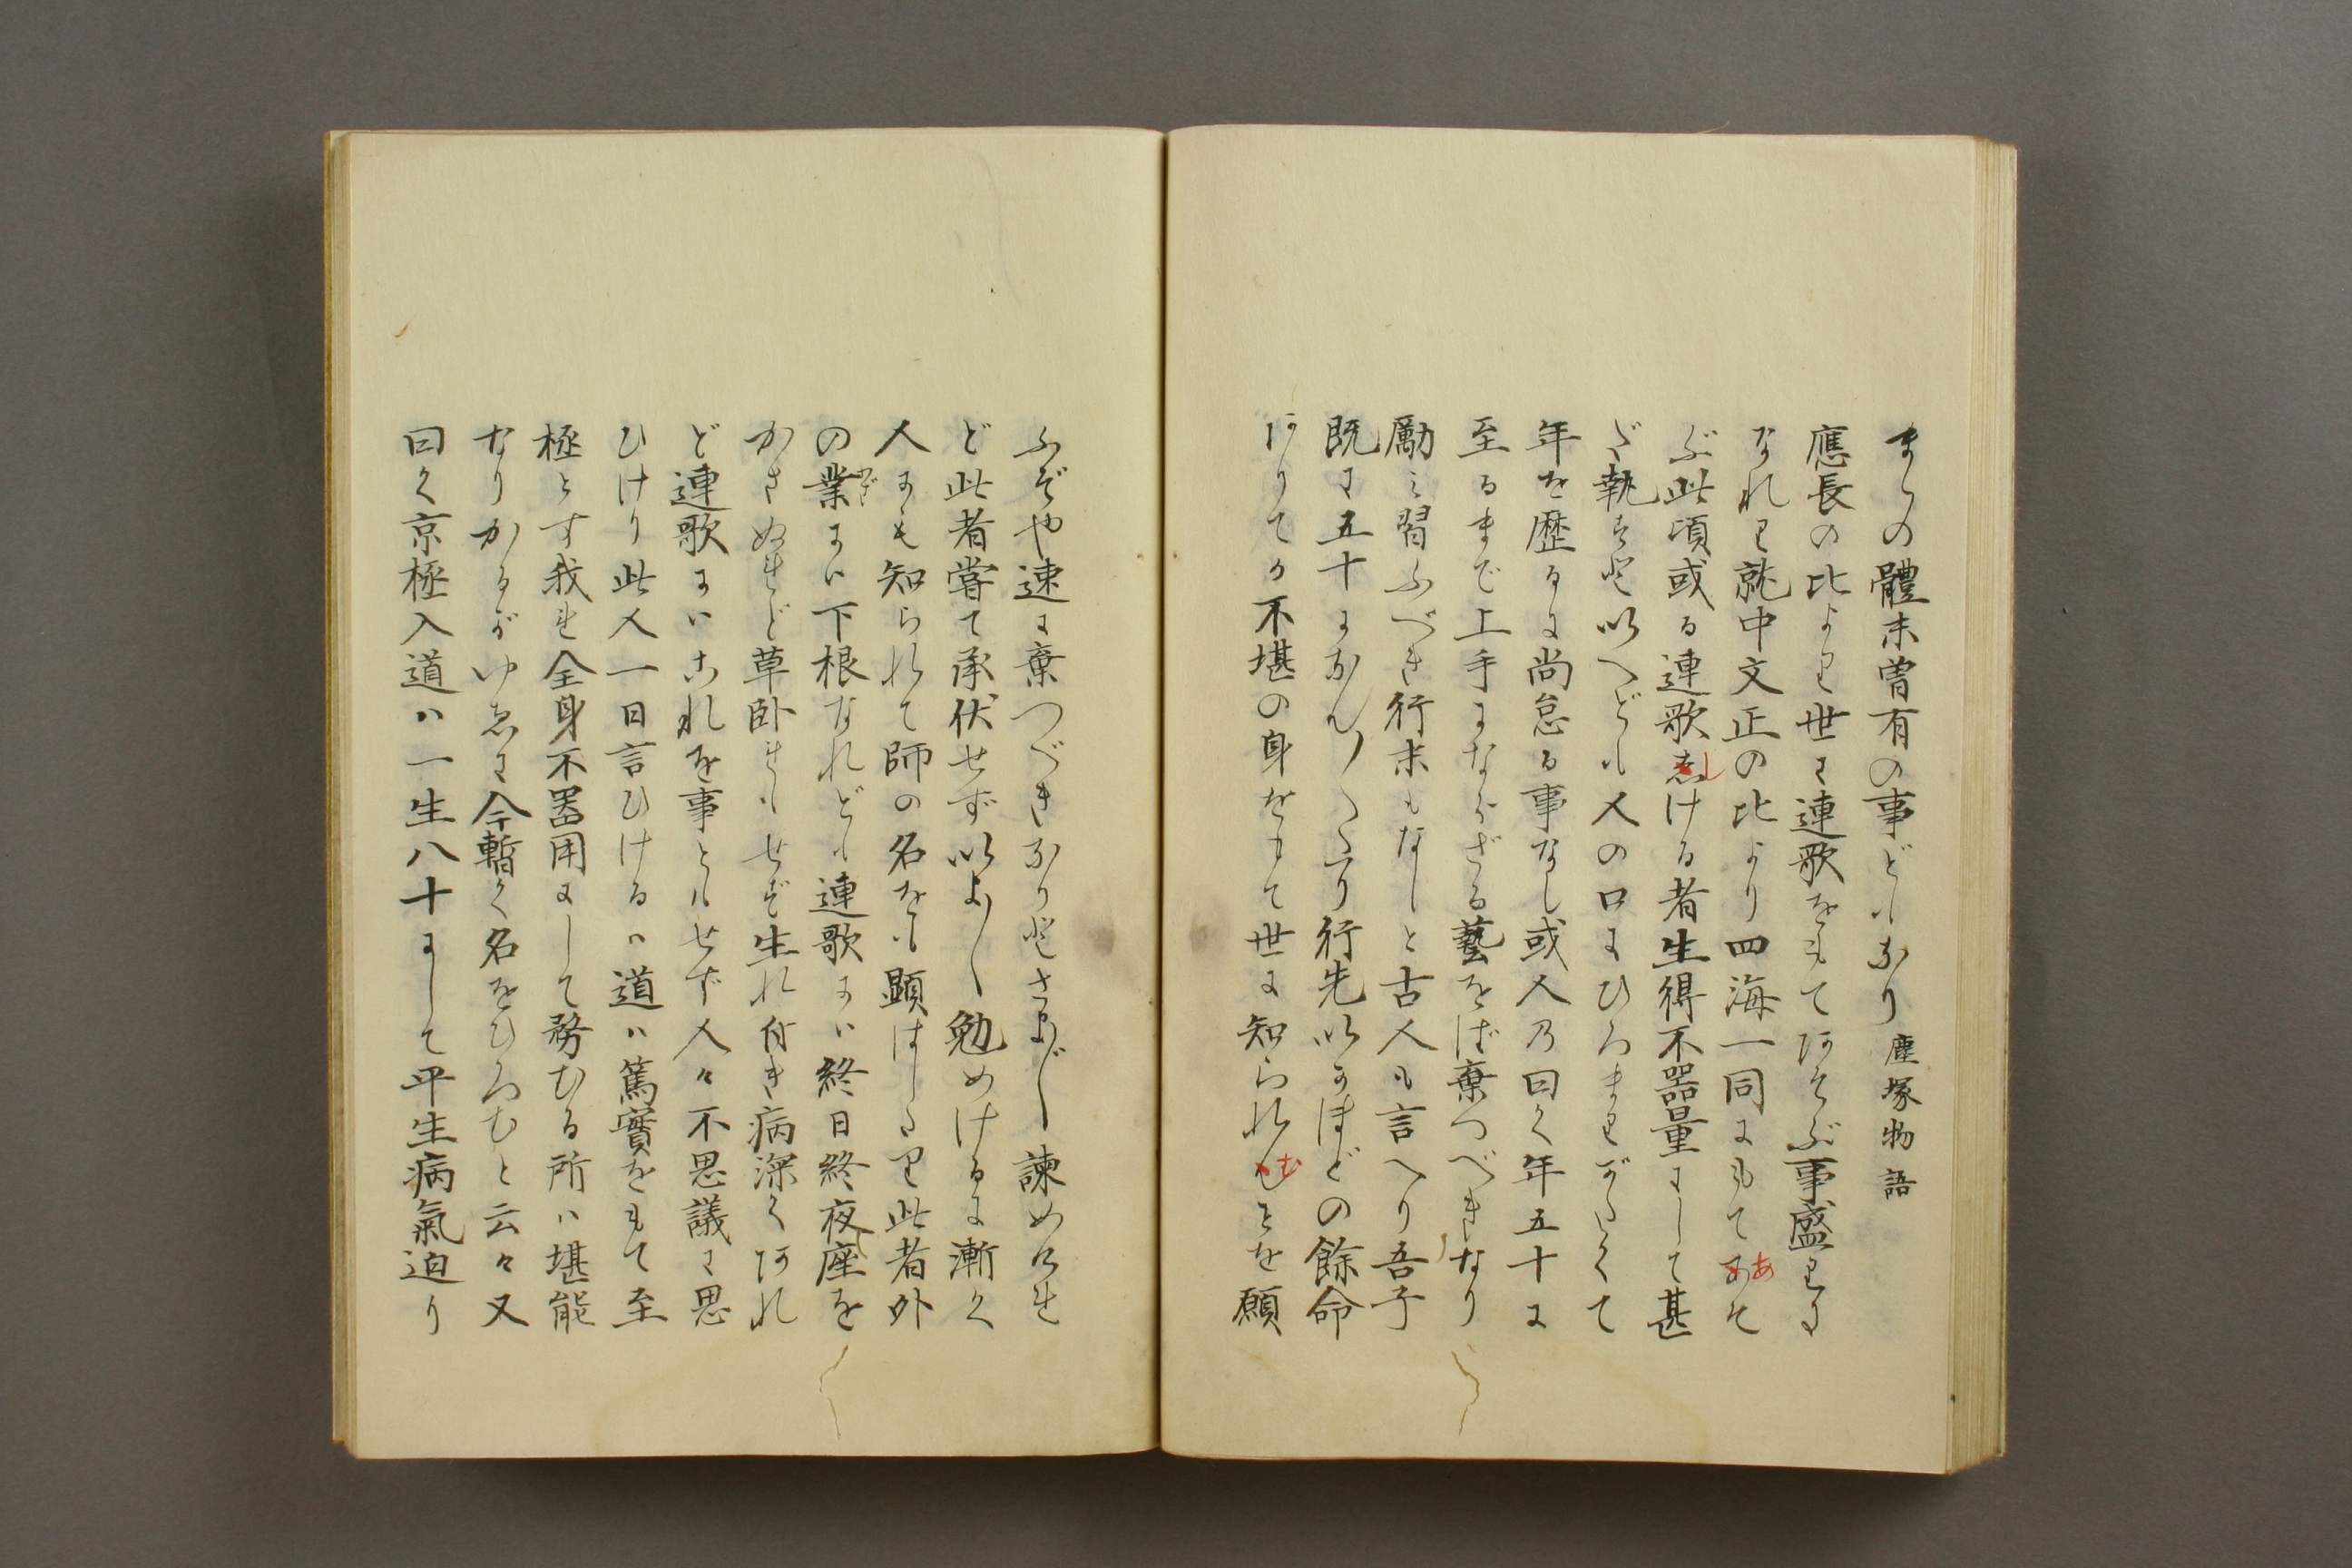 まくの體未曽有の事ども也なり 塵塚物語
應長の比より世に連歌をもてあそぶ事盛りに
なれり就中文正の比より四海一同にもてあそ
ぶ此頃或る連歌しける者生得不器量にして甚
だ執すと以へども人の口にひろまりがたくて
年を歴るに尚怠る事なし或人乃曰く年五十に
至るまで上手にならざる藝をば棄つべきなり
勵み習ふべき行末もなしと古人も言へり吾子
既に五十になんりたり行先いかほどの餘命
ありてか不堪の身をもて世に知られむことを願
ふぞや速に棄つべきなりとさまざま諫めけれ
ど此者嘗て承伏せず以よ〱勉めけるに漸く
人にも知られて師の名をも顯はしたり此者外
の業には下根なれども連歌には終日終夜座を
かさぬれど草臥れもせず生れ付き病深くあれ
ど連歌にはこれを事ともせず人々不思議に思
ひけり此人一日言ひけるは道は篤實をもて至
極とす我れ全身不器用にして務むる所は堪能
なりかるがゆゑに今暫く名をひろむと云々又
曰く京極入道は一生八十にして平生病氣迫り